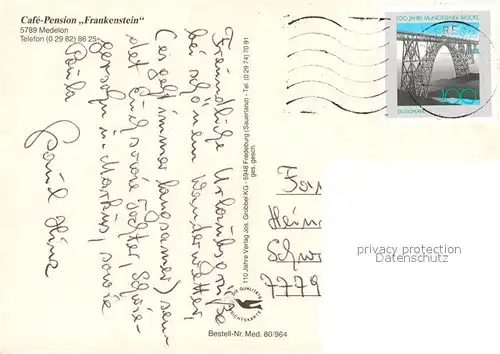 Café-Pension „Frankenstein"
5789 Medelon
Telefon (0 29 82) 86 25
Freundliche Urlaubsgrüße
bei schönem Wanderwetter,
(es geht immer langsamer) sen-
det Euch sowie Tochter, Schwie-
gersohn u. Markus, sowie
Paula
Heinz
110 Jahre Verlag Jos. Grobbel KG - 5948 Fredeburg (Sauerland) - Tel. (0 29 74) 70 91
ges. gesch.
100 JAHRE MÜNGSTENER BRÜCKE
100
DEUTSCHLAND
Fam
Hein
Schw
7779
privacy protection
DIE QUALITÄTS
ANSICHTSKARTE
Bestell-Nr. Med. 80/964